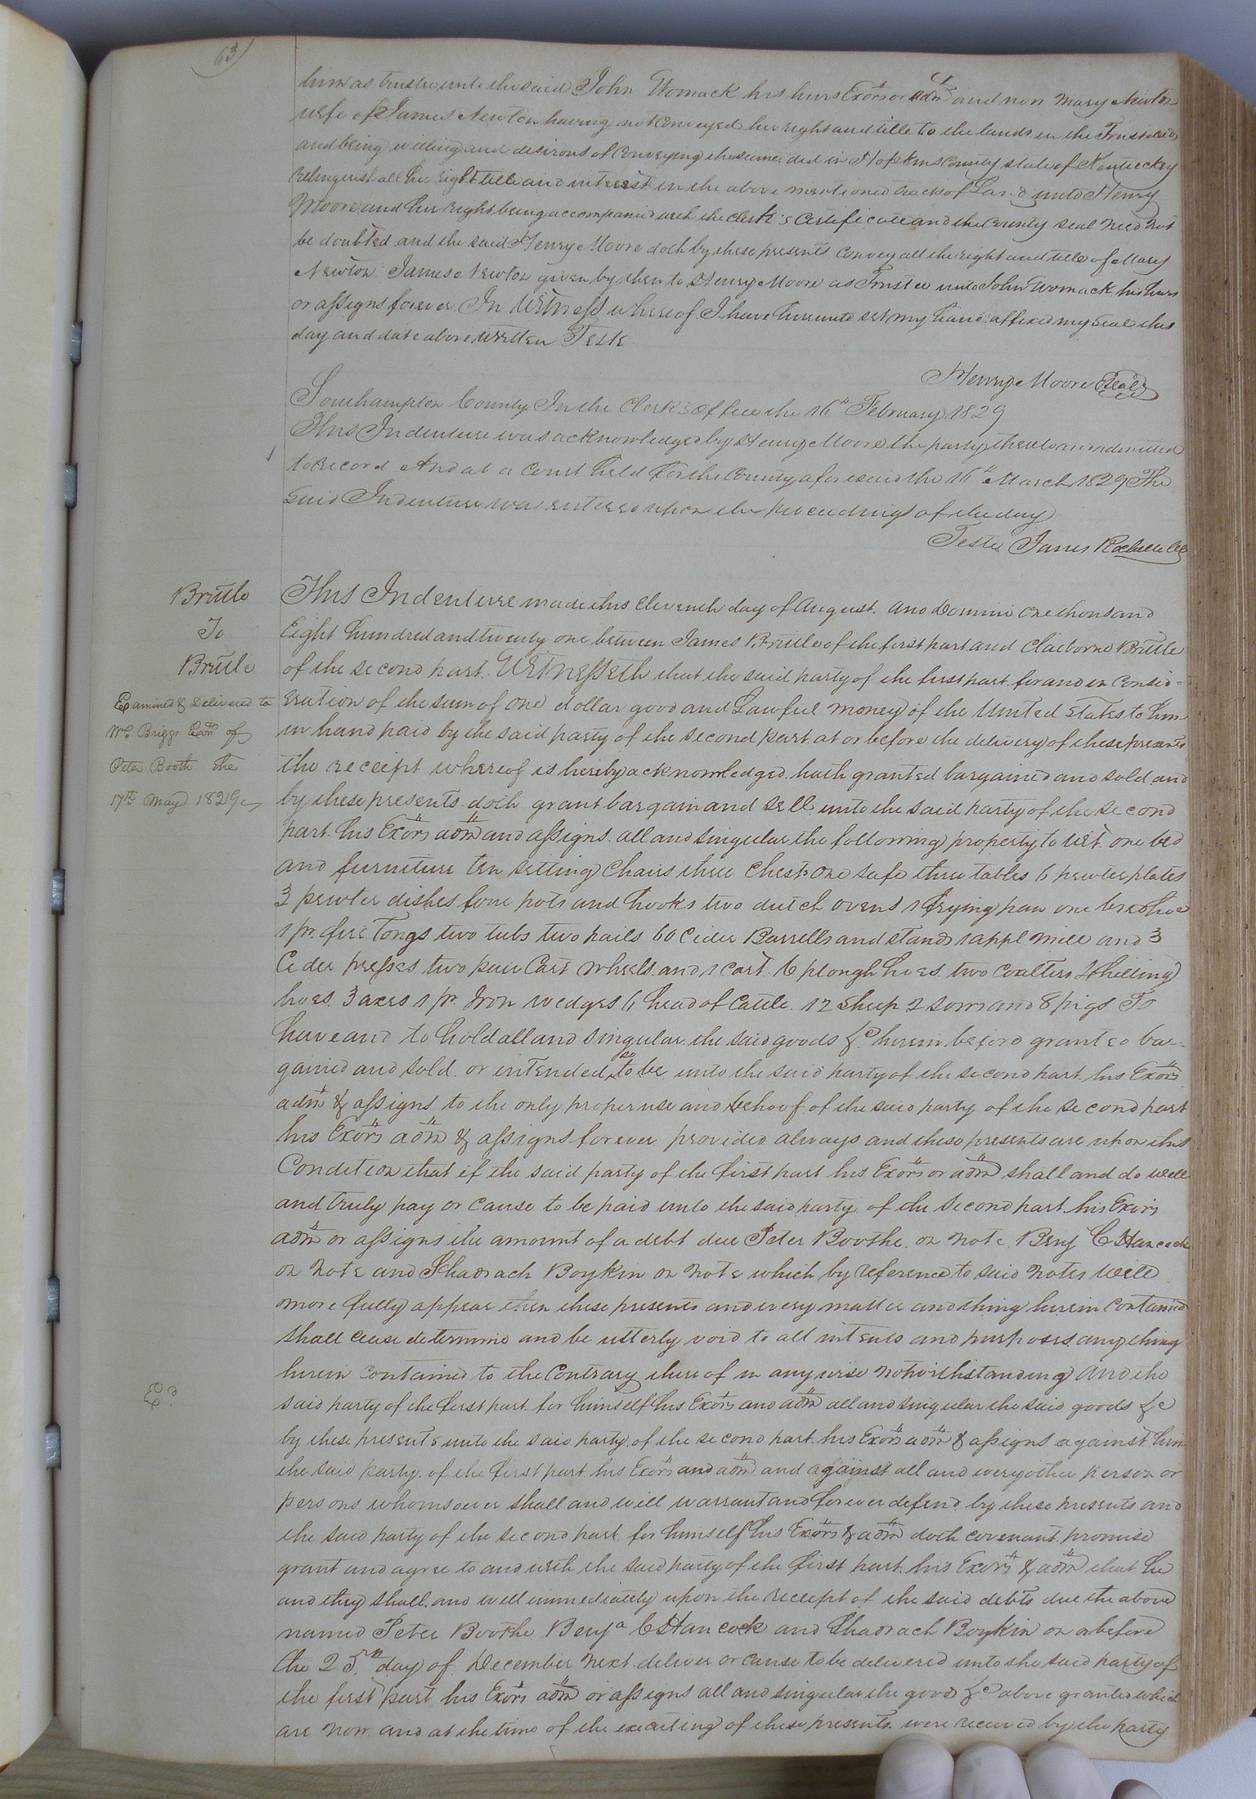 63
him as trustee unto the said John Womack his heirs Exors or adm and now Mary Newton
wife of James Newton having not Conveyed her right and title to the lands in the Trust deed
and being willing and desirous of Conveying the same did in Hopkins County state of Kentuckey
relinquish all her right title and interest in the above mentioned tracts of Land unto Henry
Moore and her right being accompanied with the Clerk's Certificate and the County seal need not
be doubted and the said Henry Moore doth by these presents convey all the right and title of Mary
Newton James Newton given by them to Henry Moore as Trustee unto John Womack his heirs
or assigns forever In Witness whereof I have hereunto set my hand affixed my seal this
day and date above written Teste
Henry Moore (Seal)
Southampton County In the Clerk's Office the 16th February 1829
This Indenture was acknowledged by Henry Moore the party thereto and admitted
to Record And at a Court held for the County aforesaid the 16th March 1829 The
said Indenture was entered upon the proceedings of the day
Teste James Rochelle CC
Brittle
To
Brittle
Examined & Delivered to
Wm Briggs Exor of
Peter Booth the
17th May 1829
This Indenture made this Eleventh day of August. Ano Domini one thousand
Eight hundred and twenty one between James Brittle of the first part and Claiborne Brittle
of the second part. Witnesseth that the said party of the first part for and in Consid-
eration of the sum of one dollar good and Lawful money of the United States to him
in hand paid by the said party of the second part at or before the delivery of these presents
the receipt whereof is hereby acknowledged hath granted bargained and sold and
by these presents doth grant bargain and sell unto the said party of the second
part his Exors adm and assigns all and singular the following property to wit one bed
and furniture ten setting Chairs three Chests one safe three tables 6 pewter plates
3 pewter dishes four pots and hooks two dutch ovens 1 frying pan one
1 pr. fire Tongs two tubs two pails 60 Cider Barrells and stands 1 appl mill and 3
Cider presses two pair Cart wheels and 1 cart 6 plough hoes two coalters 2 hilling
hoes 3 axes 1 pr. Iron wedges 6 head of Cattle. 12 sheep 2 sows and 8 pigs To
have and to hold all and singular the said goods &c herein before granted bar-
gained and sold or intended so to be unto the said party of the second part his Exors
adm & assigns to the only proper use and behoof of the said party of the second part
his Exors adm & assigns forever provided always and these presents are upon this
Condition that if the said party of the first part his Exors or adm shall and do well
and truly pay or cause to be paid unto the said party of the second part his Exors
adm or assigns the amount of a debt due Peter Boothe on note Benj C Hancock
on note and Shadrach Boykin on note which by reference to said notes will
more fully appear then these presents and every matter and thing herein contained
shall cease determine and be utterly void to all intents and purposes any thing
herein contained to the Contrary thereof in any wise notwithstanding And the
said party of the first part for himself his Exors and adm all and singular the said goods &c
by these presents unto the said party of the second part his Exors adm & assigns against him
the said party of the first part his Exors and adm and against all and every other person or
persons whomsoever shall and will warrant and forever defend by these presents and
the said party of the second part for himself his Exors & adm doth covenant promise
grant and agree to and with the said party of the first part his Exors & adm that he
and they shall and will immediately upon the receipt of the said debts due the above
named Peter Boothe Benja C Hancock and Shadrach Boykin on or before
the 25th day of December next deliver or cause to be delivered unto the said party of
the first part his Exors adm or assigns all and singular the goods &c above granted which
are now and at the time of the executing of these presents were received by the party